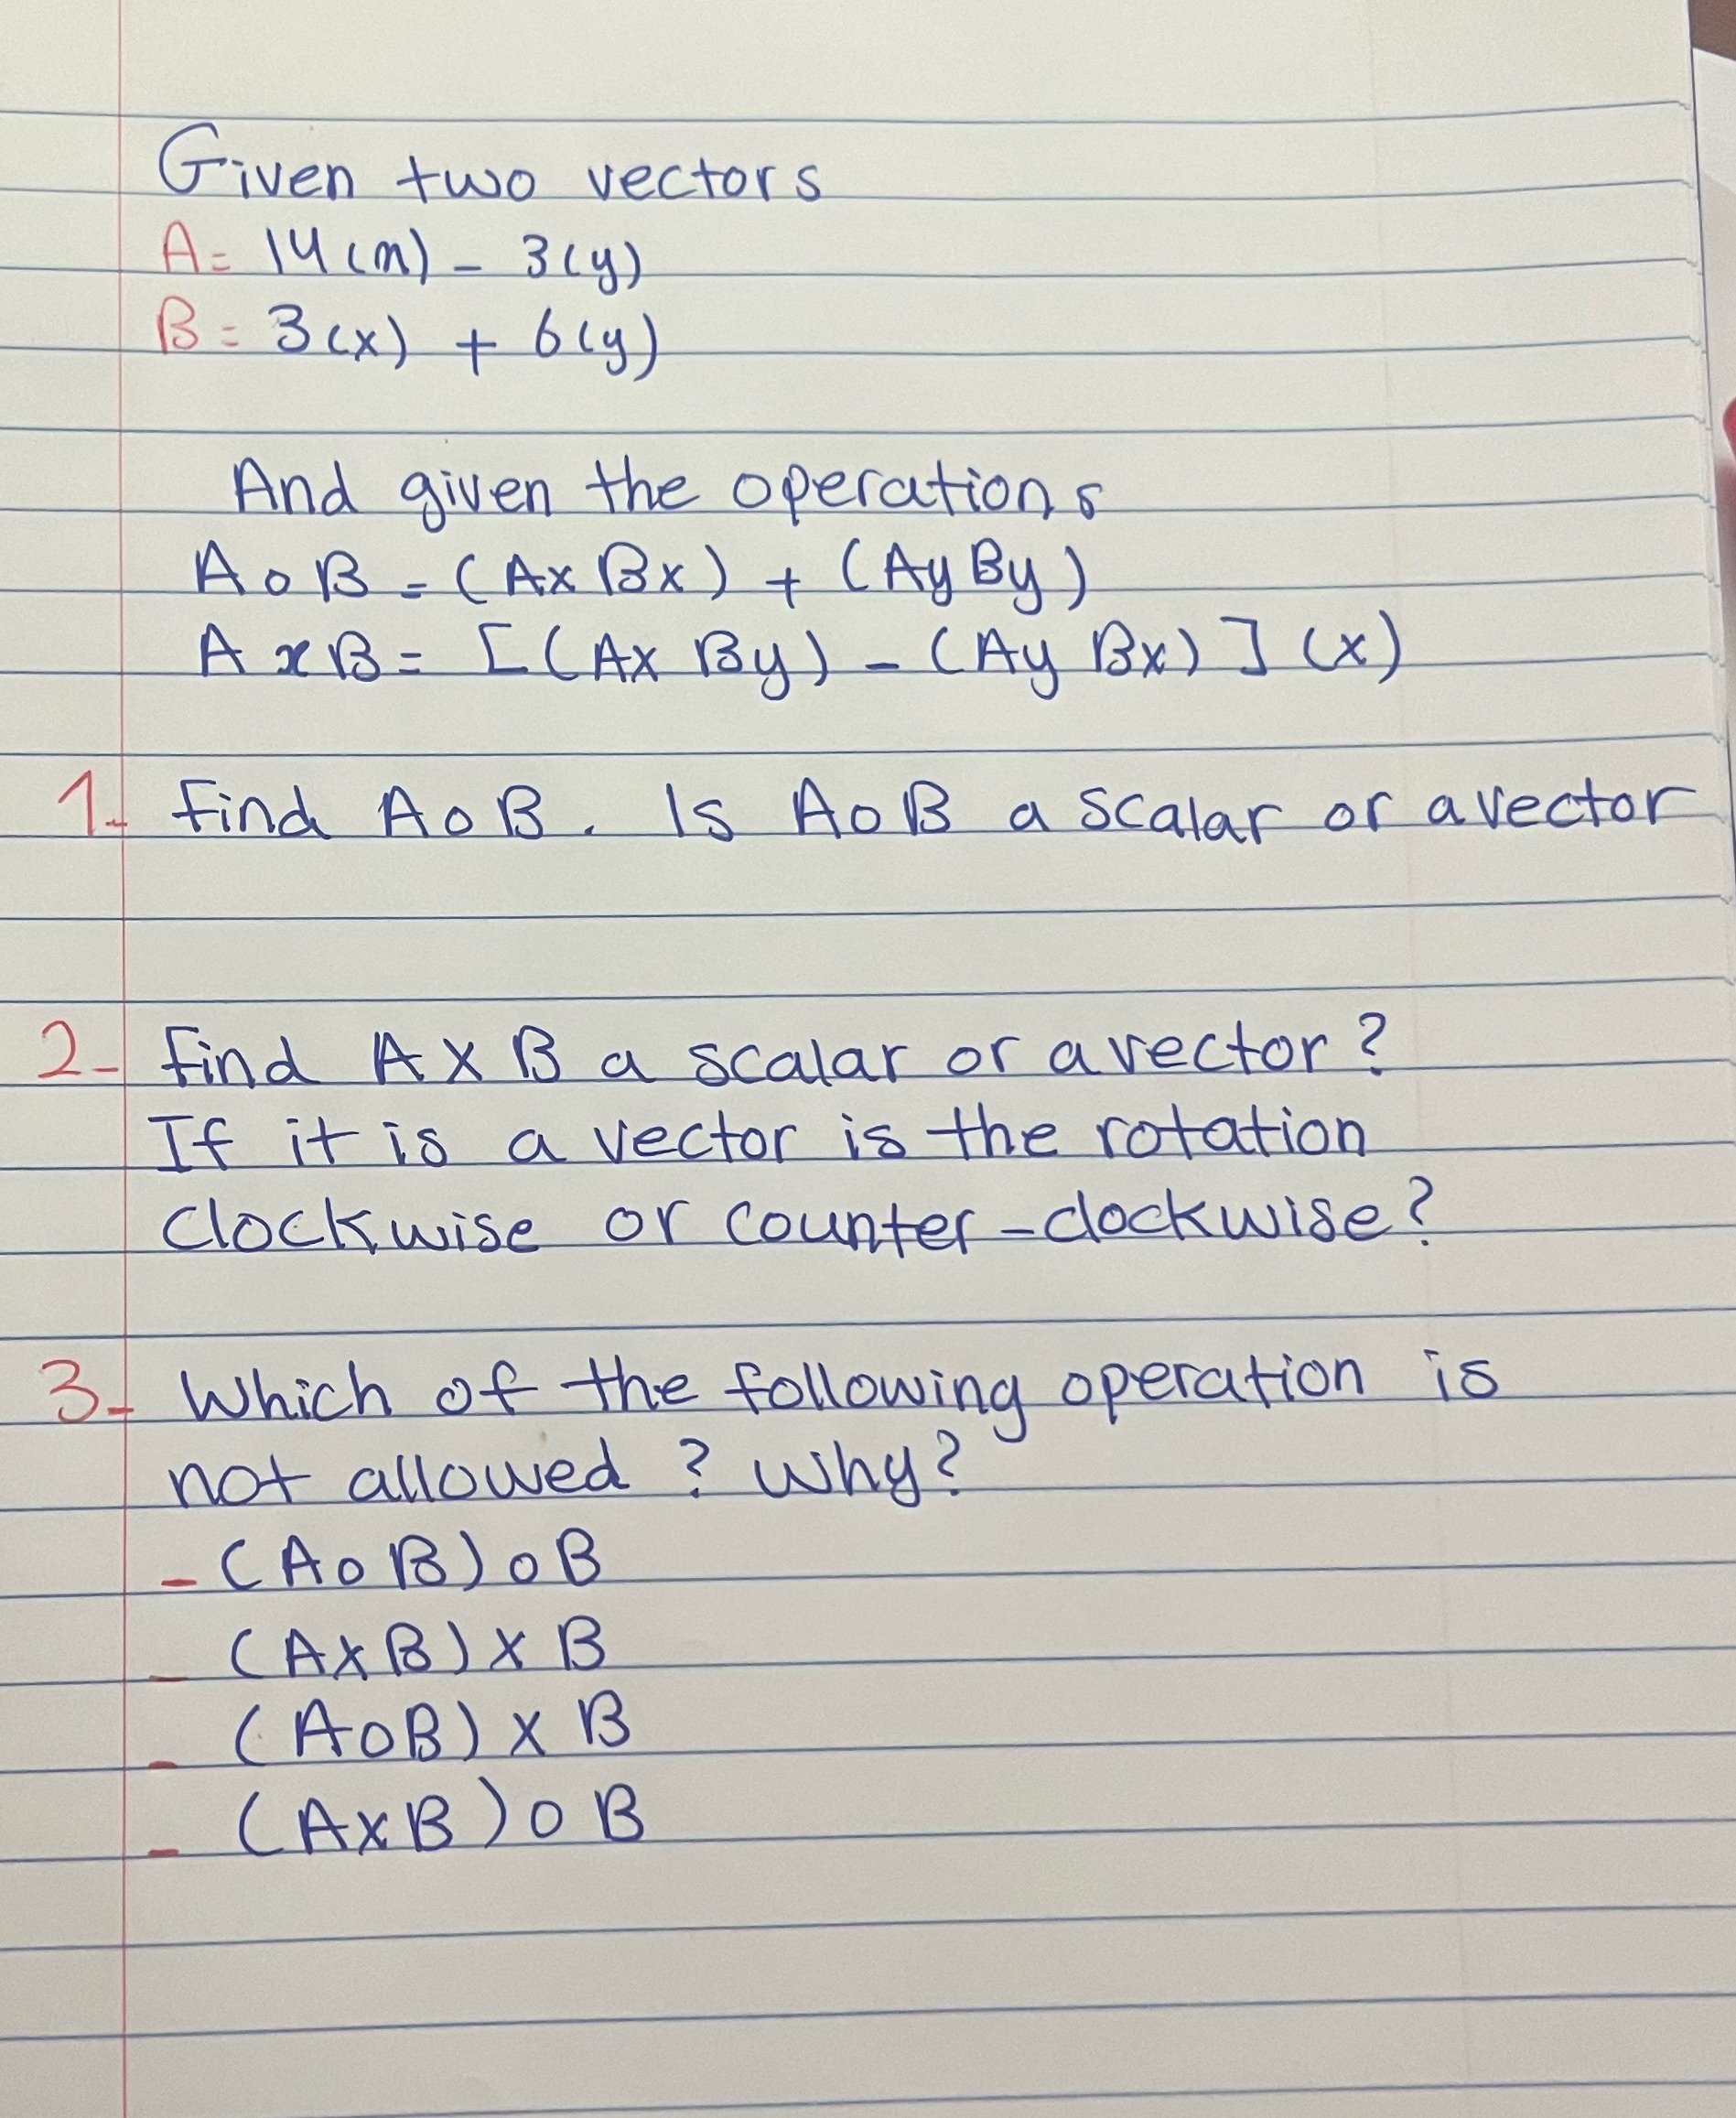 Given two vectors
A = 14(x) - 3(y)
B = 3(x) + 6(y)
And given the operations
A o B = (Ax Bx) + (Ay By)
A x B = [(Ax By) - (Ay Bx)] (x)
1- Find A o B. Is A o B a scalar or a vector
2- Find A X B a scalar or a vector?
If it is a vector is the rotation
clockwise or counter-clockwise?
3- Which of the following operation is
not allowed? Why?
- (A o B) o B
- (A X B) X B
- (A o B) X B
- (A X B) o B